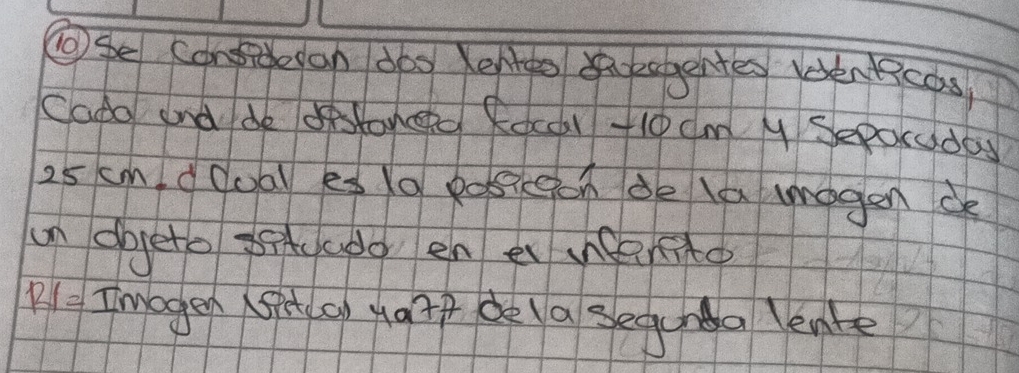 10 Se Consideran dos lentes divergentes identicas,
Cada una de distancia focal -10 cm y Separadas
25 cm. ¿Cual es la posición de la imagen de
un objeto situado en el infinito
R/= Imagen virtual de la segunda lente